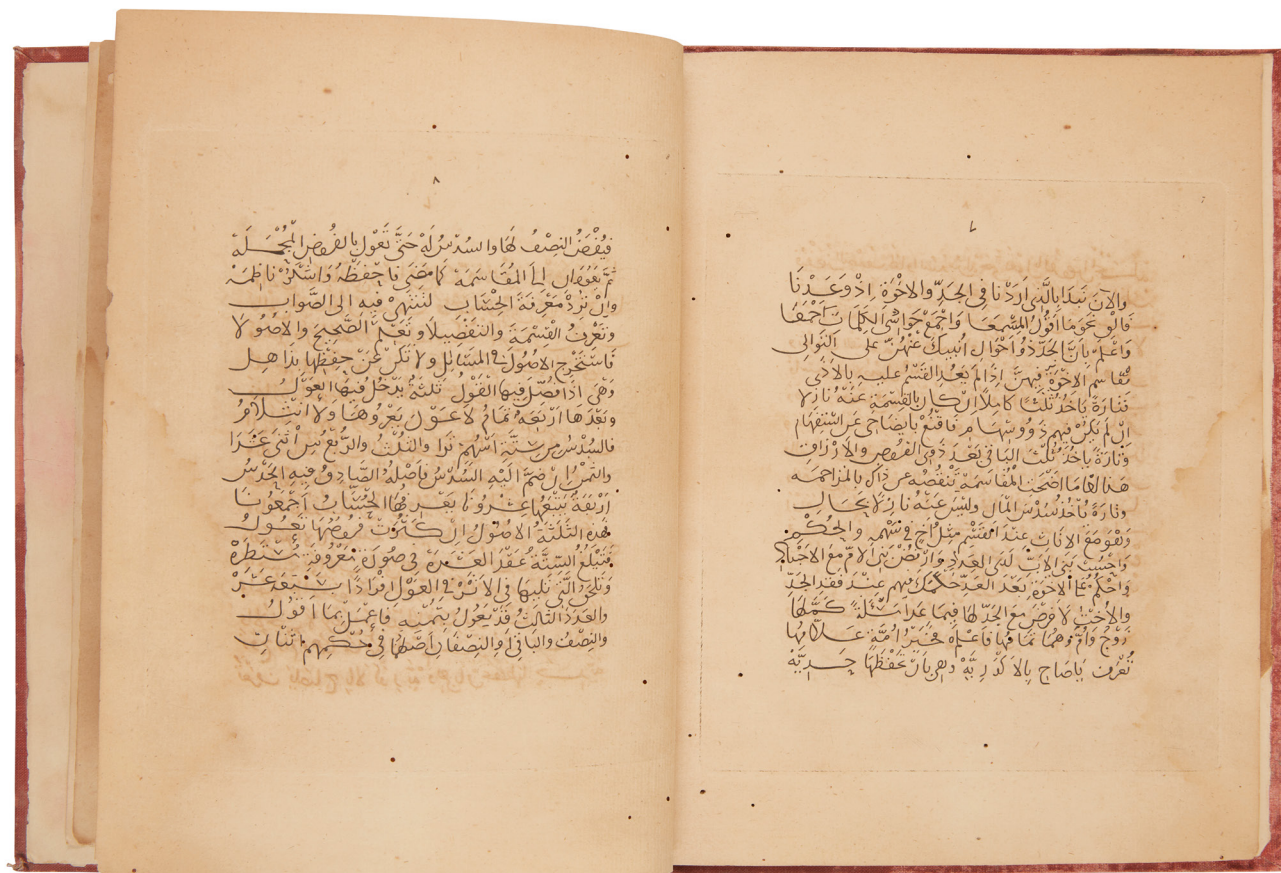 ٧
والآن نبدا بالذي اردنا في الجد والاخوة اذ وعدنا
فالق نحو ما اقول السمعا واجمع حواشي الكلمات اجمعا
واعلم بان الجد ذو احوال انبيك عنهن على التوالي
يقاسم الاخوة فيهن اذا لم يعد القسم عليه بالاذى
فتارة ياخذ ثلثا كاملا ان كان بالقسمة عنه نازلا
ان لم يكن فيهم ذوو سهام فاقنع بايضاحي عن استفهام
وتارة ياخذ ثلث الباقي بعد ذوي الفروض والارزاق
هذا اذا ما اضحت المقاسمة تنقصه عن ذاك بالمزاحمه
وتارة ياخذ سدس المال وليس عنه نازلا بحال
وهو مع الاناث عند القسم مثل اخ في سهمه والحكم
واحسب بني الاب لدى العداد وارفض بني الام مع الاجداد
واحكم على الاخوة بعد العد حكمك فيهم عند فقد الجد
والاخت لا فرض مع الجد لها فيما عدا مسئلة كملها
زوج وام وهما تمامها فاعلم فخير امة علامها
تعرف ياصاح بالاكدرية وهي بان تحفظها حرية
٨
فيفرض النصف لها والسدس له حتى تعول بالفروض المجملة
ثم يعودان الى المقاسمة كما مضى فاحفظه واشكر ناظمه
وان ترد معرفة الحساب لتنتهي فيه الى الصواب
وتعرف القسمة والتفصيلا وتعلم الصحيح والاصولا
فاستخرج الاصول في المسائل ولا تكن عن حفظها بذاهل
وهي اذا فصل فيها القول ثلثة يدخل فيها العول
وبعدها اربعة تمام لا عول يعروها ولا انثلام
فالسدس من ستة اسهم ترا والثلث والربع من اثنى عشرا
والثمن ان ضم اليه السدس فاصله الصادق فيه الحدس
اربعة يتبعها عشرونا يعرفها الحساب اجمعونا
فهذه الثلثة الاصول ان كثرت فروضها تعول
فتبلغ الستة عقد العشرة في صورة معروفة مشتهرة
وتلحق التي تليها في الاثر في العول افرادا سبعة عشر
والعدد الثالث قد يعول بثمنه فاعمل بما اقول
والنصف والباقي او النصفان اصلها في حكمهم اثنان